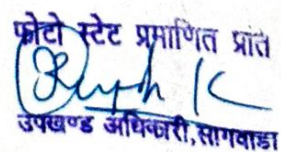 फोटो स्टेट प्रमाणित प्रति
उपखण्ड अधिकारी, सागवाडा